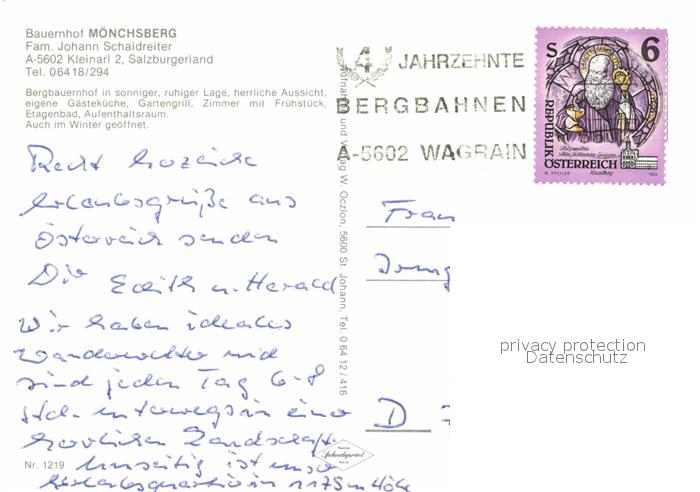 Bauernhof MÖNCHSBERG
Fam. Johann Schaidreiter
A-5602 Kleinarl 2, Salzburgerland
Tel. 06418/294
Bergbauernhof in sonniger, ruhiger Lage, herrliche Aussicht,
eigene Gästeküche, Gartengrill, Zimmer mit Frühstück,
Etagenbad, Aufenthaltsraum.
Auch im Winter geöffnet.
Recht herzliche
Urlaubsgrüße aus
Österreich senden
Dir Edith u. Harald
Wir haben ideales
Wanderwetter und
sind jeden Tag 6-8
Std. unterwegs in einer
herrlichen Landschaft.
ist unser
Urlaubsquartier in 1175 m Höhe
Nr. 1219
und Verlag W. Oczlon, 5600 St. Johann, Tel. 06412/416
4 JAHRZEHNTE
BERGBAHNEN
A-5602 WAGRAIN
S 6
REPUBLIK
ÖSTERREICH
Frau
Irmg
D
privacy protection
Datenschutz